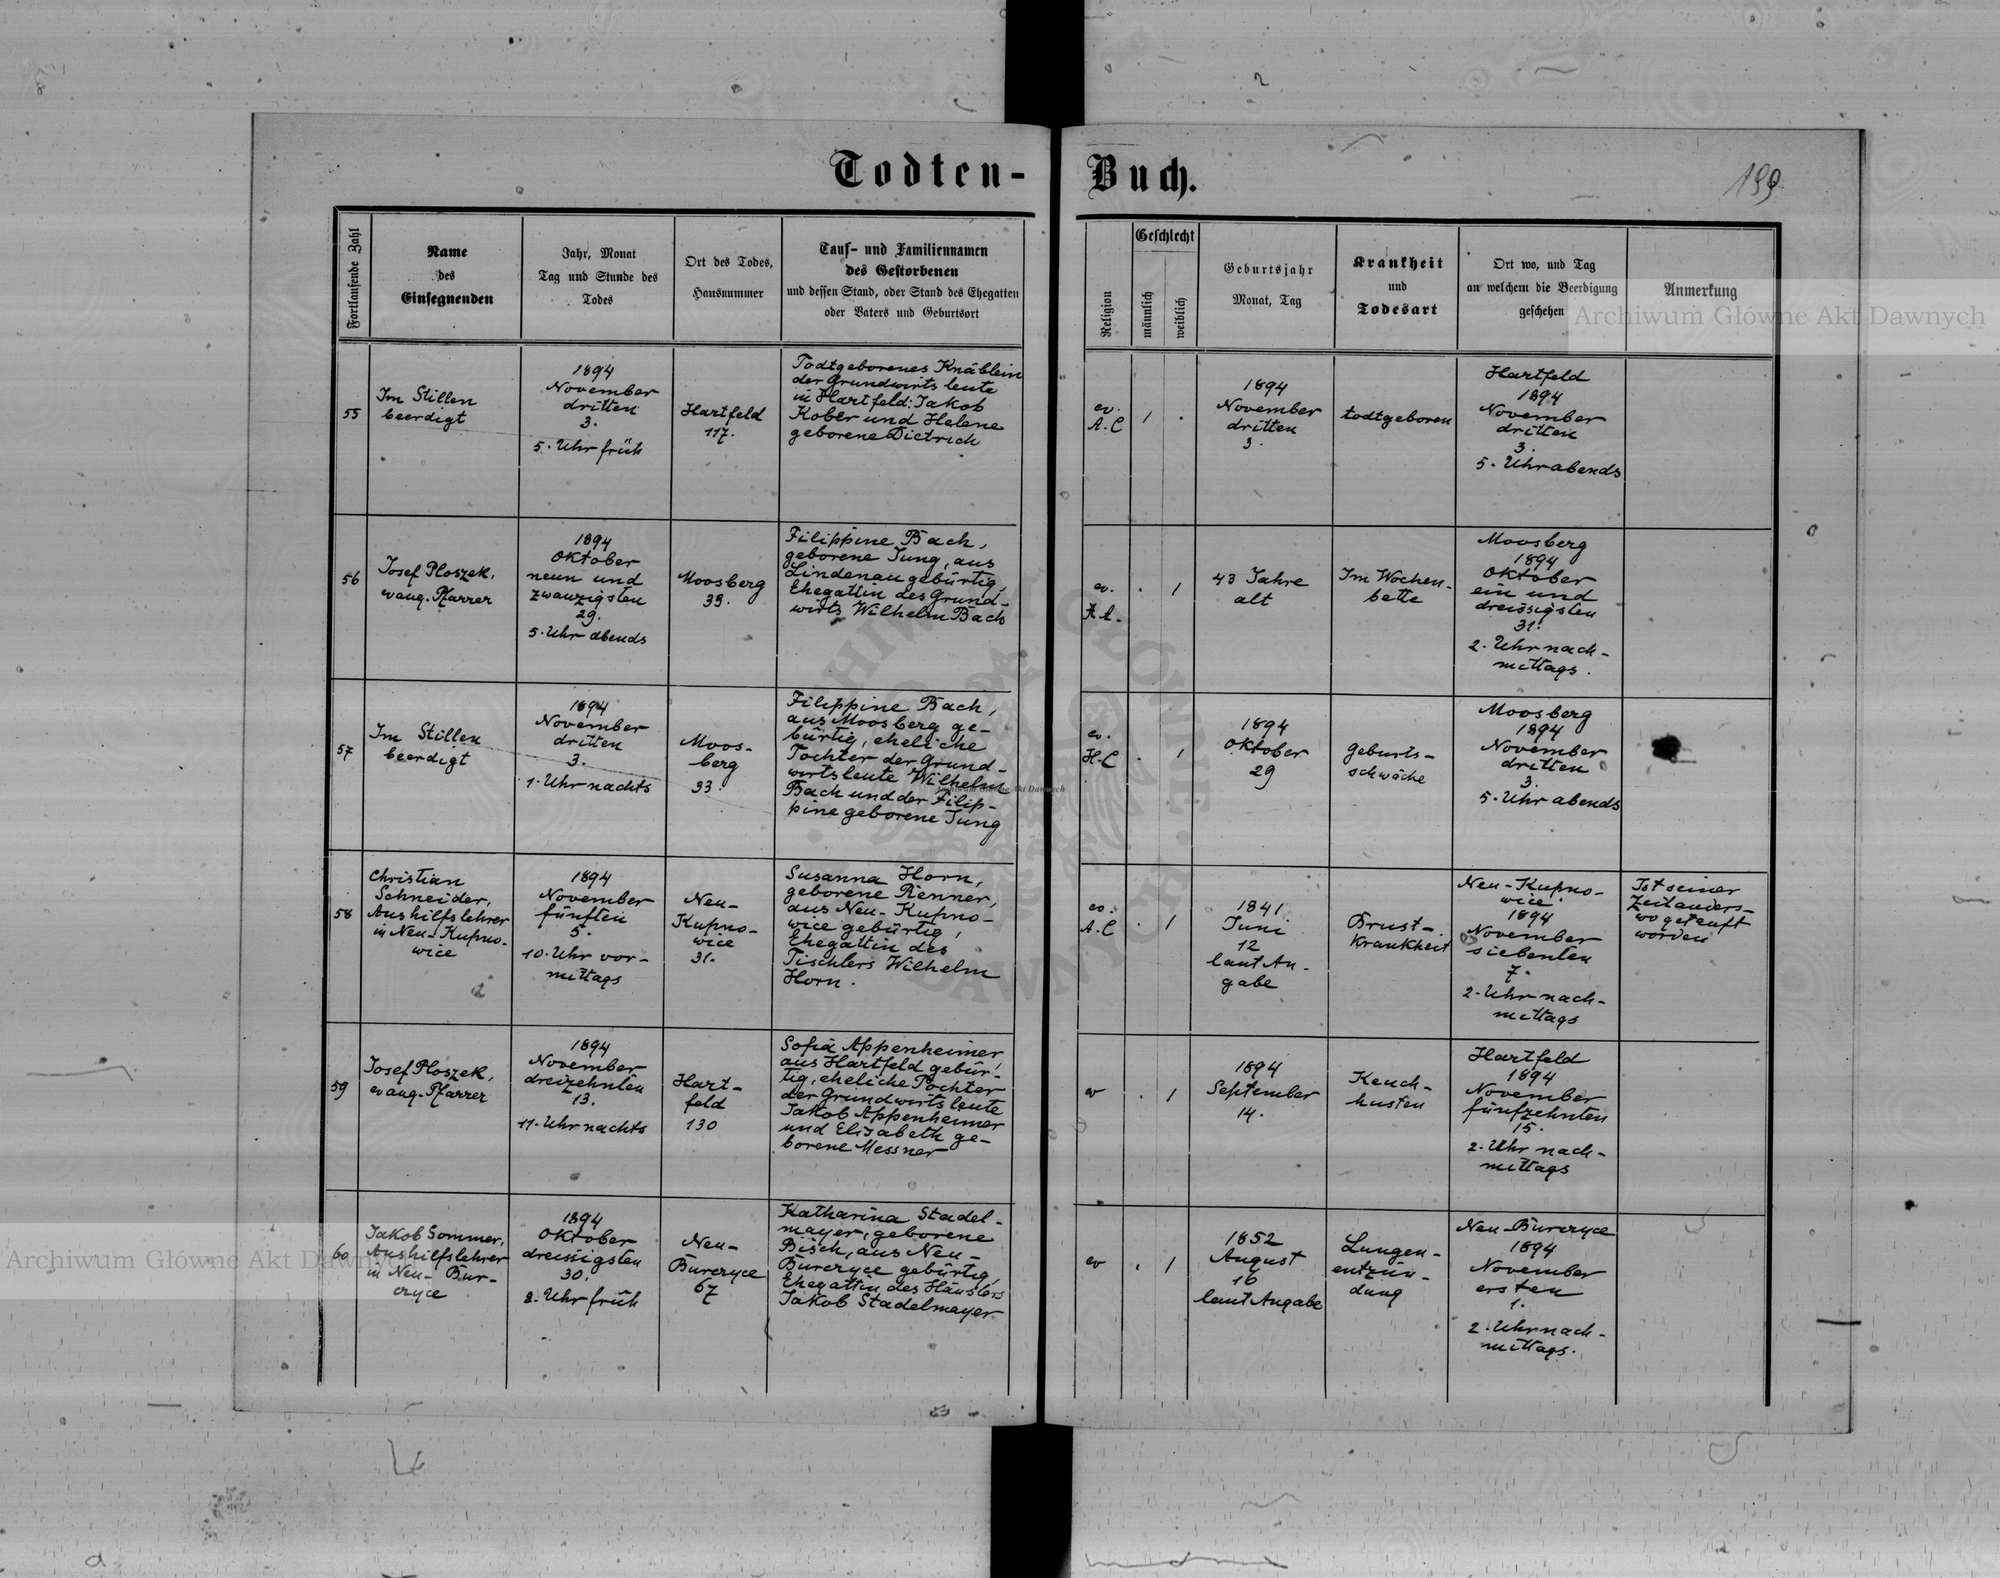 Todten-Buch.
199
Fortlaufende Zahl
Name
des
Einsegnenden
Jahr, Monat
Tag und Stunde des
Todes
Ort des Todes,
Hausnummer
Tauf- und Familiennamen
des Gestorbenen
und dessen Stand, oder Stand des Ehegatten
oder Vaters und Geburtsort
Religion
Geschlecht
männlich
weiblich
Geburtsjahr
Monat, Tag
Krankheit
und
Todesart
Ort wo, und Tag
an welchem die Beerdigung
geschehen
Anmerkung
Archiwum Główne Akt Dawnych
55
Im Stillen
beerdigt
1894
November
dritten
3.
5. Uhr früh
Hartfeld
117.
Todtgeborenes Knäblein
der Grundwirtsleute
in Hartfeld: Jakob
Kober und Helene
geborene Dietrich
ev.
A.C
1
.
1894
November
dritten
3.
todtgeboren
Hartfeld
1894
November
dritten
3.
5. Uhr abends
56
Josef Ploszek,
evang. Pfarrer
1894
Oktober
neun und
zwanzigsten
29.
5. Uhr abends
Moosberg
33.
Filippine Bach,
geborene Jung, aus
Lindenau gebürtig,
Ehegattin des Grund-
wirts Wilhelm Bach
ev.
.
1
43 Jahre
alt
Im Wochen-
bette
Moosberg
1894
Oktober
ein und
dreissigsten
31.
2. Uhr nach-
mittags.
57
Im Stillen
beerdigt
1894
November
dritten
3.
1. Uhr nachts
Moos-
berg
33.
Filippine Bach,
aus Moosberg ge-
bürtig, eheliche
Tochter der Grund-
wirtsleute Wilhelm
Bach und der Filip-
pine geborene Jung
ev.
H.C
.
1
1894
Oktober
29
Geburts-
schwäche
Moosberg
1894
November
dritten
3.
5. Uhr abends
Archiwum Główne Akt Dawnych
58
Christian
Schneider,
Aushilfslehrer
in Neu-Kupno-
wice
1894
November
fünften
5.
10. Uhr vor-
mittags
Neu-
Kupno-
wice
31.
Susanna Horn,
geborene Renner,
aus Neu-Kupno-
wice gebürtig,
Ehegattin des
Tischlers Wilhelm
Horn.
ev.
A.C
.
1
1841
Juni
12
laut An-
gabe
Brust-
krankheit
Neu-Kupno-
wice.
1894
November
siebenten
7.
2. Uhr nach-
mittags
Ist seiner
Zeit anders-
wo getauft
worden
59
Josef Ploszek,
evang. Pfarrer
1894
November
dreizehnten
13.
11. Uhr nachts
Hart-
feld
130
Sofia Appenheimer,
aus Hartfeld gebür-
tig, eheliche Tochter
der Grundwirtsleute
Jakob Appenheimer
und Elisabeth ge-
borene Messner
ev
.
1
1894
September
14.
Keuch-
husten
Hartfeld
1894
November
fünfzehnten
15.
2. Uhr nach-
mittags
60
Jakob Sommer,
Aushilfslehrer
in Neu-Bur-
czyce
1894
Oktober
dreissigsten
30.
8. Uhr früh
Neu-
Burczyce
67
Katharina Stadel-
mayer, geborene
Bisch, aus Neu-
Burczyce gebürtig,
Ehegattin des Häuslers
Jakob Stadelmayer
ev
.
1
1852
August
16
laut Angabe
Lungen-
entzün-
dung
Neu-Burczyce
1894
November
ersten
1.
2. Uhr nach-
mittags.
Archiwum Główne Akt Dawnych